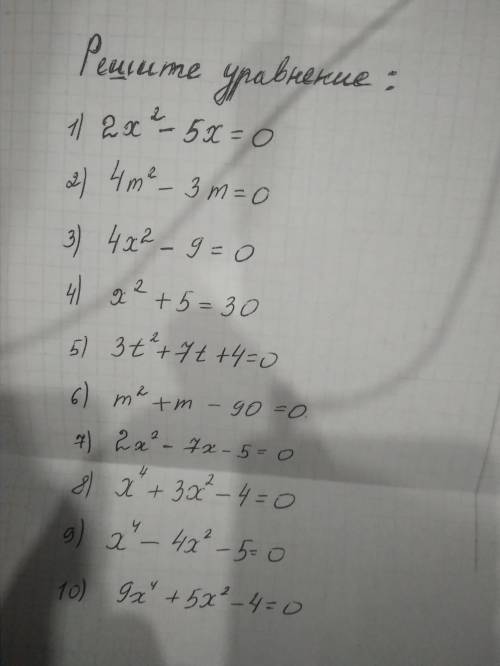 Решите уравнение:
1) 2x² - 5x = 0
2) 4m² - 3m = 0
3) 4x² - 9 = 0
4) x² + 5 = 30
5) 3t² + 7t + 4 = 0
6) m² + m - 90 = 0
7) 2x² - 7x - 5 = 0
8) x⁴ + 3x² - 4 = 0
9) x⁴ - 4x² - 5 = 0
10) 9x⁴ + 5x² - 4 = 0